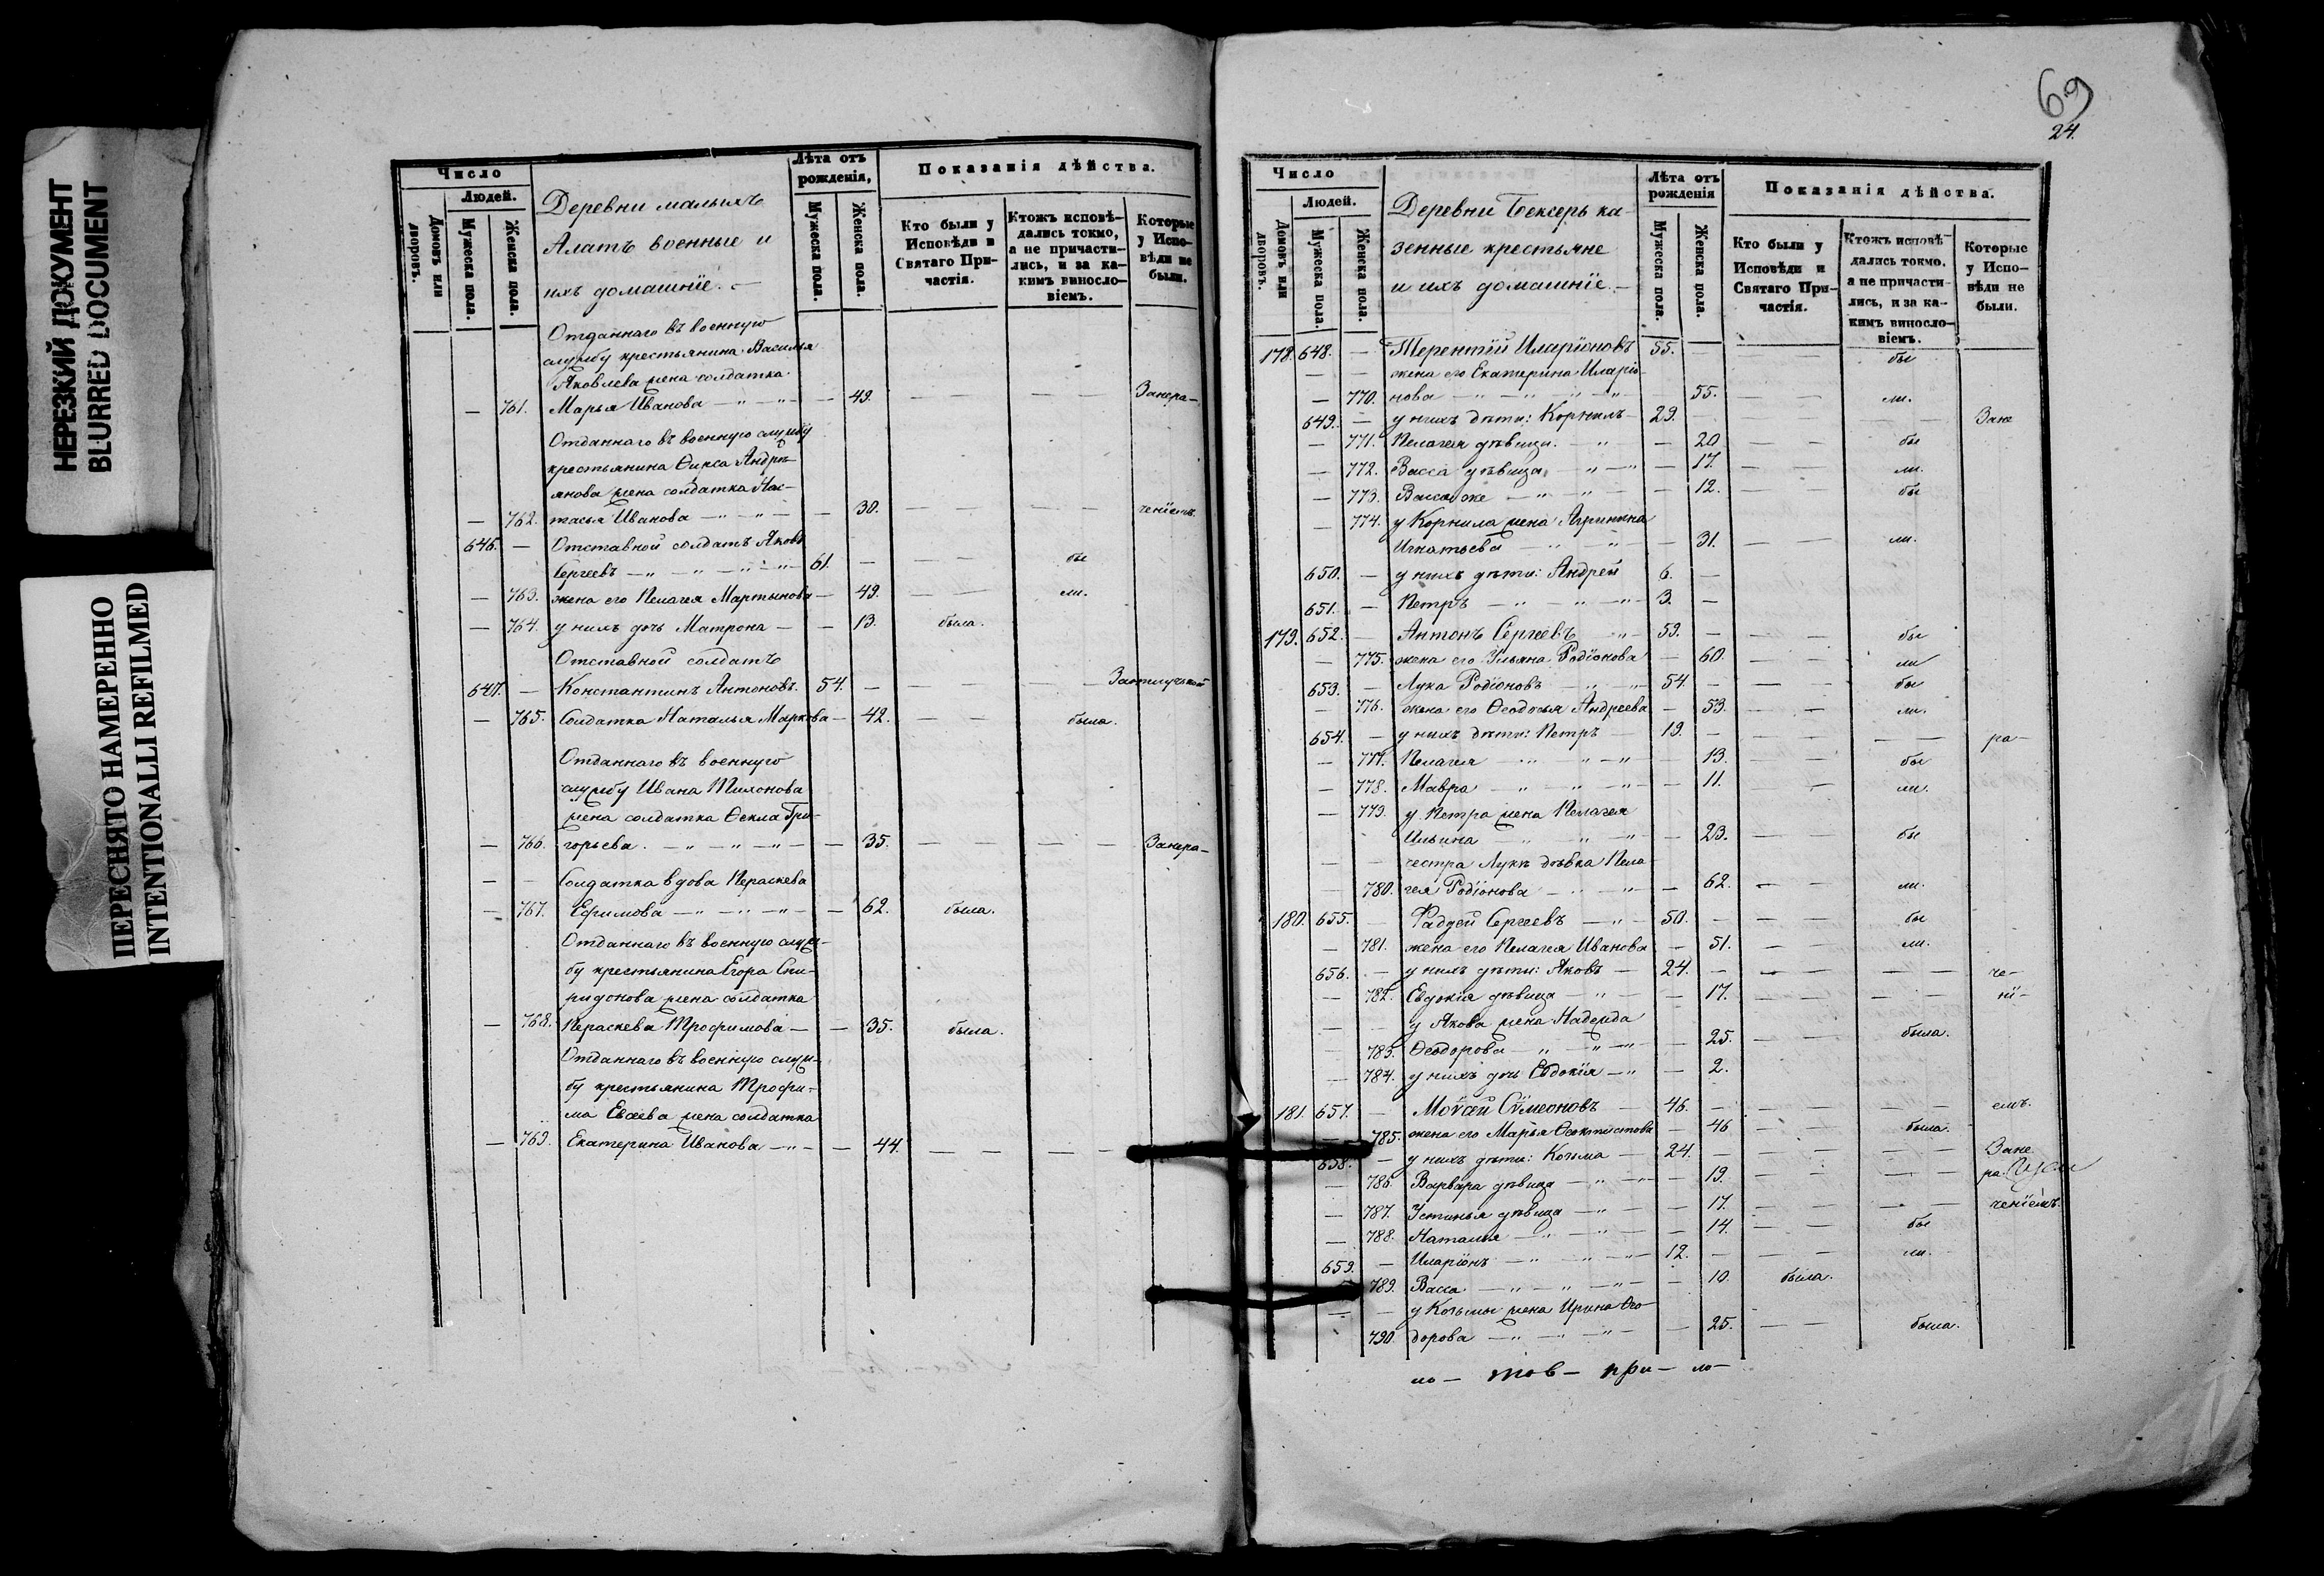 НЕРЕЗКИЙ ДОКУМЕНТ
BLURRED DOCUMENT
ПЕРЕСНЯТО НАМЕРЕННО
INTENTIONALLI REFILMED
Число
Людей.
Домовъ или дворовъ.
Мужеска пола.
Женска пола.
Деревни малыхъ
Алатъ военные и
ихъ домашнїе. —
Лѣта отъ рожденія,
Мужеска пола.
Женска пола.
Показанія дѣйства.
Кто были у Исповѣди и Святаго Причастія.
Ктожъ исповѣдались токмо, а не причастились, и за какимъ винословіемъ.
Которые у Исповѣди не были.
Отданнаго въ военную
службу крестьянина Василья
Яковлева жена солдатка
— 761. Марья Иванова — „ — „ — — 49. — — — — Занера-
Отданнаго въ военную службу
крестьянина Ѳирса Андрѣ-
янова жена солдатка Нас-
— 762. тасья Иванова — „ — „ — — 30. — — — — ченїемъ.
646. — Отставной солдатъ Яковъ
Сергеевъ — „ — „ — „ — „ — 61. — — — бы
— 763. жена его Пелагея Мартынова — 49. — — ли.
— 764. у нихъ дочь Матрона — — 13. была.
Отставной солдатъ
647. — Константинъ Антоновъ. 54. — — — — — Заотлучкой
— 765. Солдатка Наталья Маркова — 42. — — была.
Отданнаго въ военную
службу Ивана Тихонова
жена солдатка Ѳекла Гри-
— 766. горьева. — „ — „ — „ — — 35. — — — — Занера-
— — Солдатка вдова Пераскева
— 767. Ефимова — „ — „ — „ — — 62. была.
Отданнаго въ военную служ-
бу крестьянина Егора Спи-
ридонова жена солдатка
— 768. Пераскева Трофимова — — 35. была.
Отданнаго въ военную служ-
бу крестьянина Трофи-
ма Евсеева жена солдатка
— 769. Екатерина Иванова — „ — — 44. — — — —
69
24.
Число
Людей.
Домовъ или дворовъ.
Мужеска пола.
Женска пола.
Деревни Бексерь ка-
зенные крестьяне
и ихъ домашнїе. —
Лѣта отъ рожденія
Мужеска пола.
Женска пола.
Показанія дѣйства.
Кто были у Исповѣди и Святаго Причастія.
Ктожъ исповѣдались токмо, а не причастились, и за какимъ винословіемъ.
Которые у Исповѣди не были.
178. 648. — Терентїй Иларїоновъ 55. — — бы
— — жена его Екатерина Иларїо-
— 770. нова — „ — „ — „ — „ — 55. — — ли.
649. — у нихъ дѣти: Корнилъ — 29. — — Зане
— 771. Пелагея дѣвица. — „ — 20. — — бы
— 772. Васса дѣвица — „ — „ — 17. — ли.
— 773. Васса же — „ — „ — — 12. — — бы
— 774. у Корнила жена Агрипина
Игнатьева — „ — „ — — 31. — — ли.
650. — у нихъ дѣти: Андрей 6. —
651. — Петръ — „ — „ — „ — 3. —
179. 652. — Антонъ Сергеевъ — „ — 59. — — — бы
— 775. жена его Ульяна Родїонова — 60. — — ли
653. — Лука Родїоновъ — „ — „ — 54. — — — бы
— 776. жена его Ѳеодосья Андреева — 53. — — ли.
654. — у нихъ дѣти: Петръ — 19. — — — — — ра-
— 777. Пелагея — „ — „ — „ — — 13. — — бы
— 778. Мавра — „ — „ — „ — — 11. — — ли.
— 779. у Петра жена Пелагея
Ильина — „ — „ — „ — — 23. — — бы
— — сестра Луки дѣвка Пела-
— 780. гея Родїонова — „ — „ — — 62. — — ли.
180. 655. — Фаддей Сергеевъ — „ — 50. — — — бы
— 781. жена его Пелагея Иванова — 51. — — ли.
656. — у нихъ дѣти: Яковъ — 24. — — — — — че-
— 782. Евдокїя дѣвица — „ — — 17. — — — — нї-
— — у Якова жена Надежда
— 783. Ѳеодорова — „ — „ — „ — — 25. — — была.
— 784. у нихъ дочь Евдокїя — „ — 2.
181. 657. — Моѵсей Сѵмеоновъ — 46. — — — — — емъ.
— 785. жена его Марья Ѳеоктистова — 46 — — была.
658. — у нихъ дѣти: Козьма — 24. — — — — — Зане
— 786. Варвара дѣвица — „ — „ — — 19. — — — — ра-
— 787. Устинья дѣвица — „ — — 17. — — — — ченїемъ.
— 788. Наталья — „ — „ — — 14. — — бы
659. — Иларїонъ — „ — „ — „ — 12. — — — ли.
— 789. Васса — „ — „ — „ — — 10. была.
— — у Козьмы жена Ирина Ѳео-
790. дорова — „ — „ — „ — — 25. — — была.